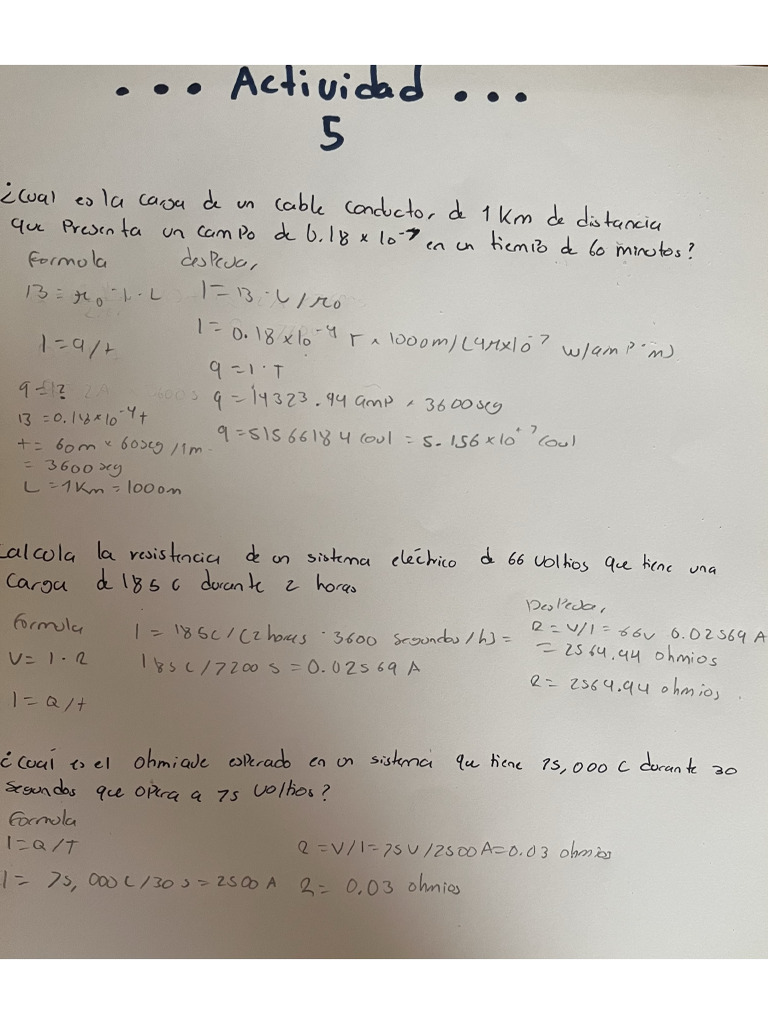 ... Actividad ...
5
¿Cual es la carga de un cable conductor, de 1 Km de distancia
que Presenta un campo de 0.18 x 10⁻⁷ en un tiempo de 60 minutos?
Formula despeja,
B = μ₀ · I · L I = B · L / μ₀
I = q/t I = 0.18 x 10⁻⁴ T x 1000m / (4π x 10⁻⁷ w/amp · m)
q = I · T
q = I? q = 14323.94 amp x 3600 seg
B = 0.18 x 10⁻⁴ t
t = 60m x 60seg / 1m. q = 51566184 coul = 5.156 x 10⁺⁷ coul
= 3600 seg
L = 1 Km = 1000m
Calcula la resistencia de un sistema eléctrico de 66 voltios que tiene una
carga de 185 C durante 2 horas
Formula I = 185C / (2 horas · 3600 segundos / h) = Despeja,
V = I · R 185 C / 7200 s = 0.02569 A R = V/I = 66V 0.02569 A
= 2564.94 ohmios
I = Q/t R = 2564.94 ohmios.
¿Cuaí es el ohmiaje esperado en un sistema que tiene 75,000 C durante 30
segundos que opera a 75 voltios?
Formula
I = Q/T R = V/I = 75V / 2500 A = 0.03 ohmios
I = 75,000 C / 30 s = 2500 A R = 0.03 ohmios